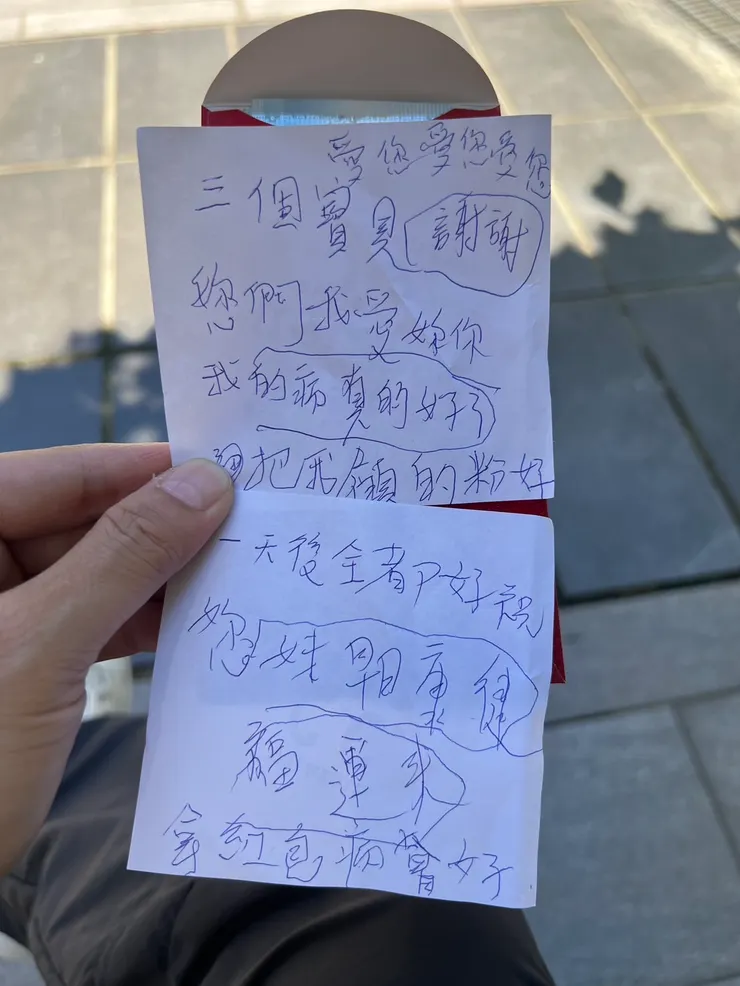 愛您愛您愛您
三個寶貝 謝謝
您們我愛妳你
我的病真的好了
把我顧的粉好
一天後全都好祝
您 早日康健
福運來
拿紅包病會好